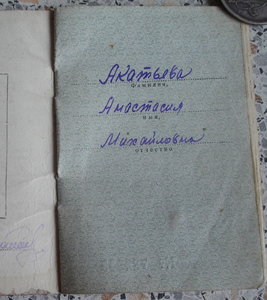 Акатьева
фамилия,
Анастасия
имя,
Михайловна
отчество